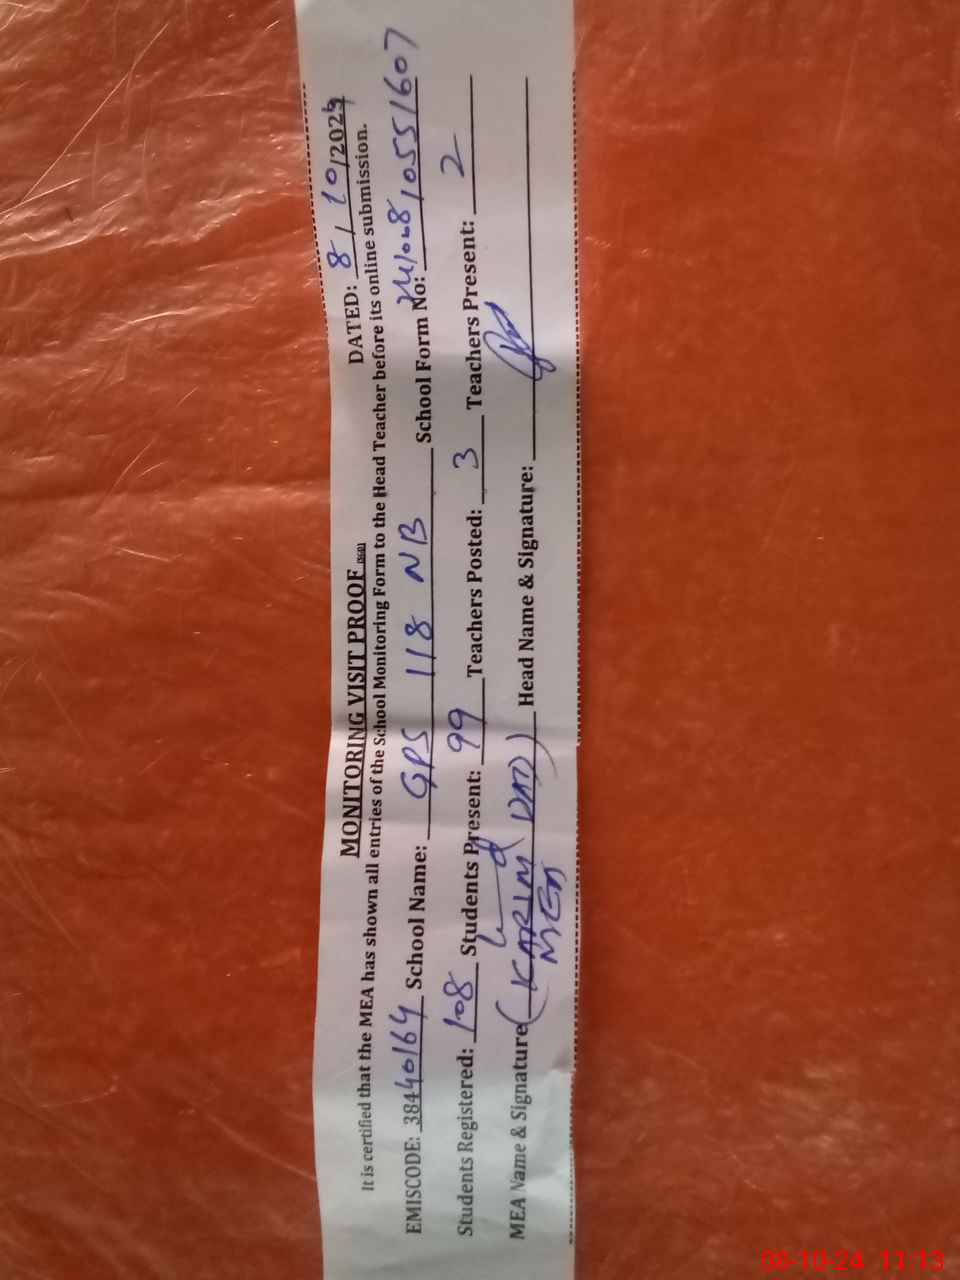 MONITORING VISIT PROOF
DATED: 8/10/2024
It is certified that the MEA has shown all entries of the School Monitoring Form to the Head Teacher before its online submission.
EMISCODE: 38440164 School Name: GPS 118 NB School Form No: 241008/055/607
Students Registered: 108 Students Present: 99 Teachers Posted: 3 Teachers Present: 2
MEA Name & Signature (KARIM DAD) Head Name & Signature:
MEA
08-10-24 11:13